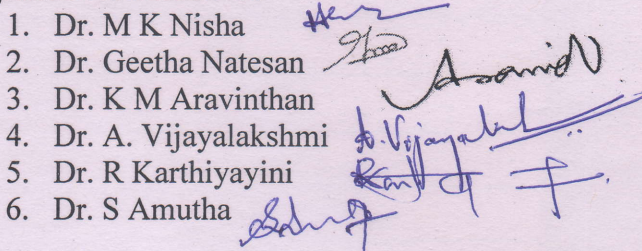 1. Dr. M K Nisha
2. Dr. Geetha Natesan
3. Dr. K M Aravinthan
4. Dr. A. Vijayalakshmi A. Vijayalak
5. Dr. R Karthiyayini
6. Dr. S Amutha